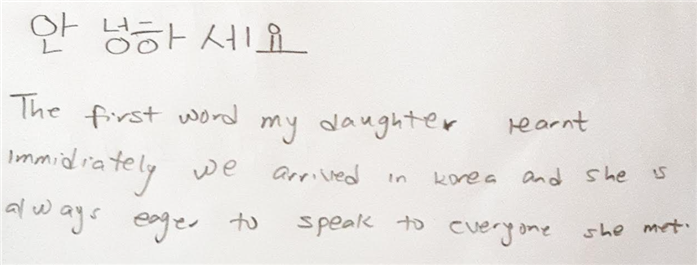 안 녕하 세요
The first word my daughter learnt
immidiately we arrived in korea and she is
always eager to speak to everyone she met.